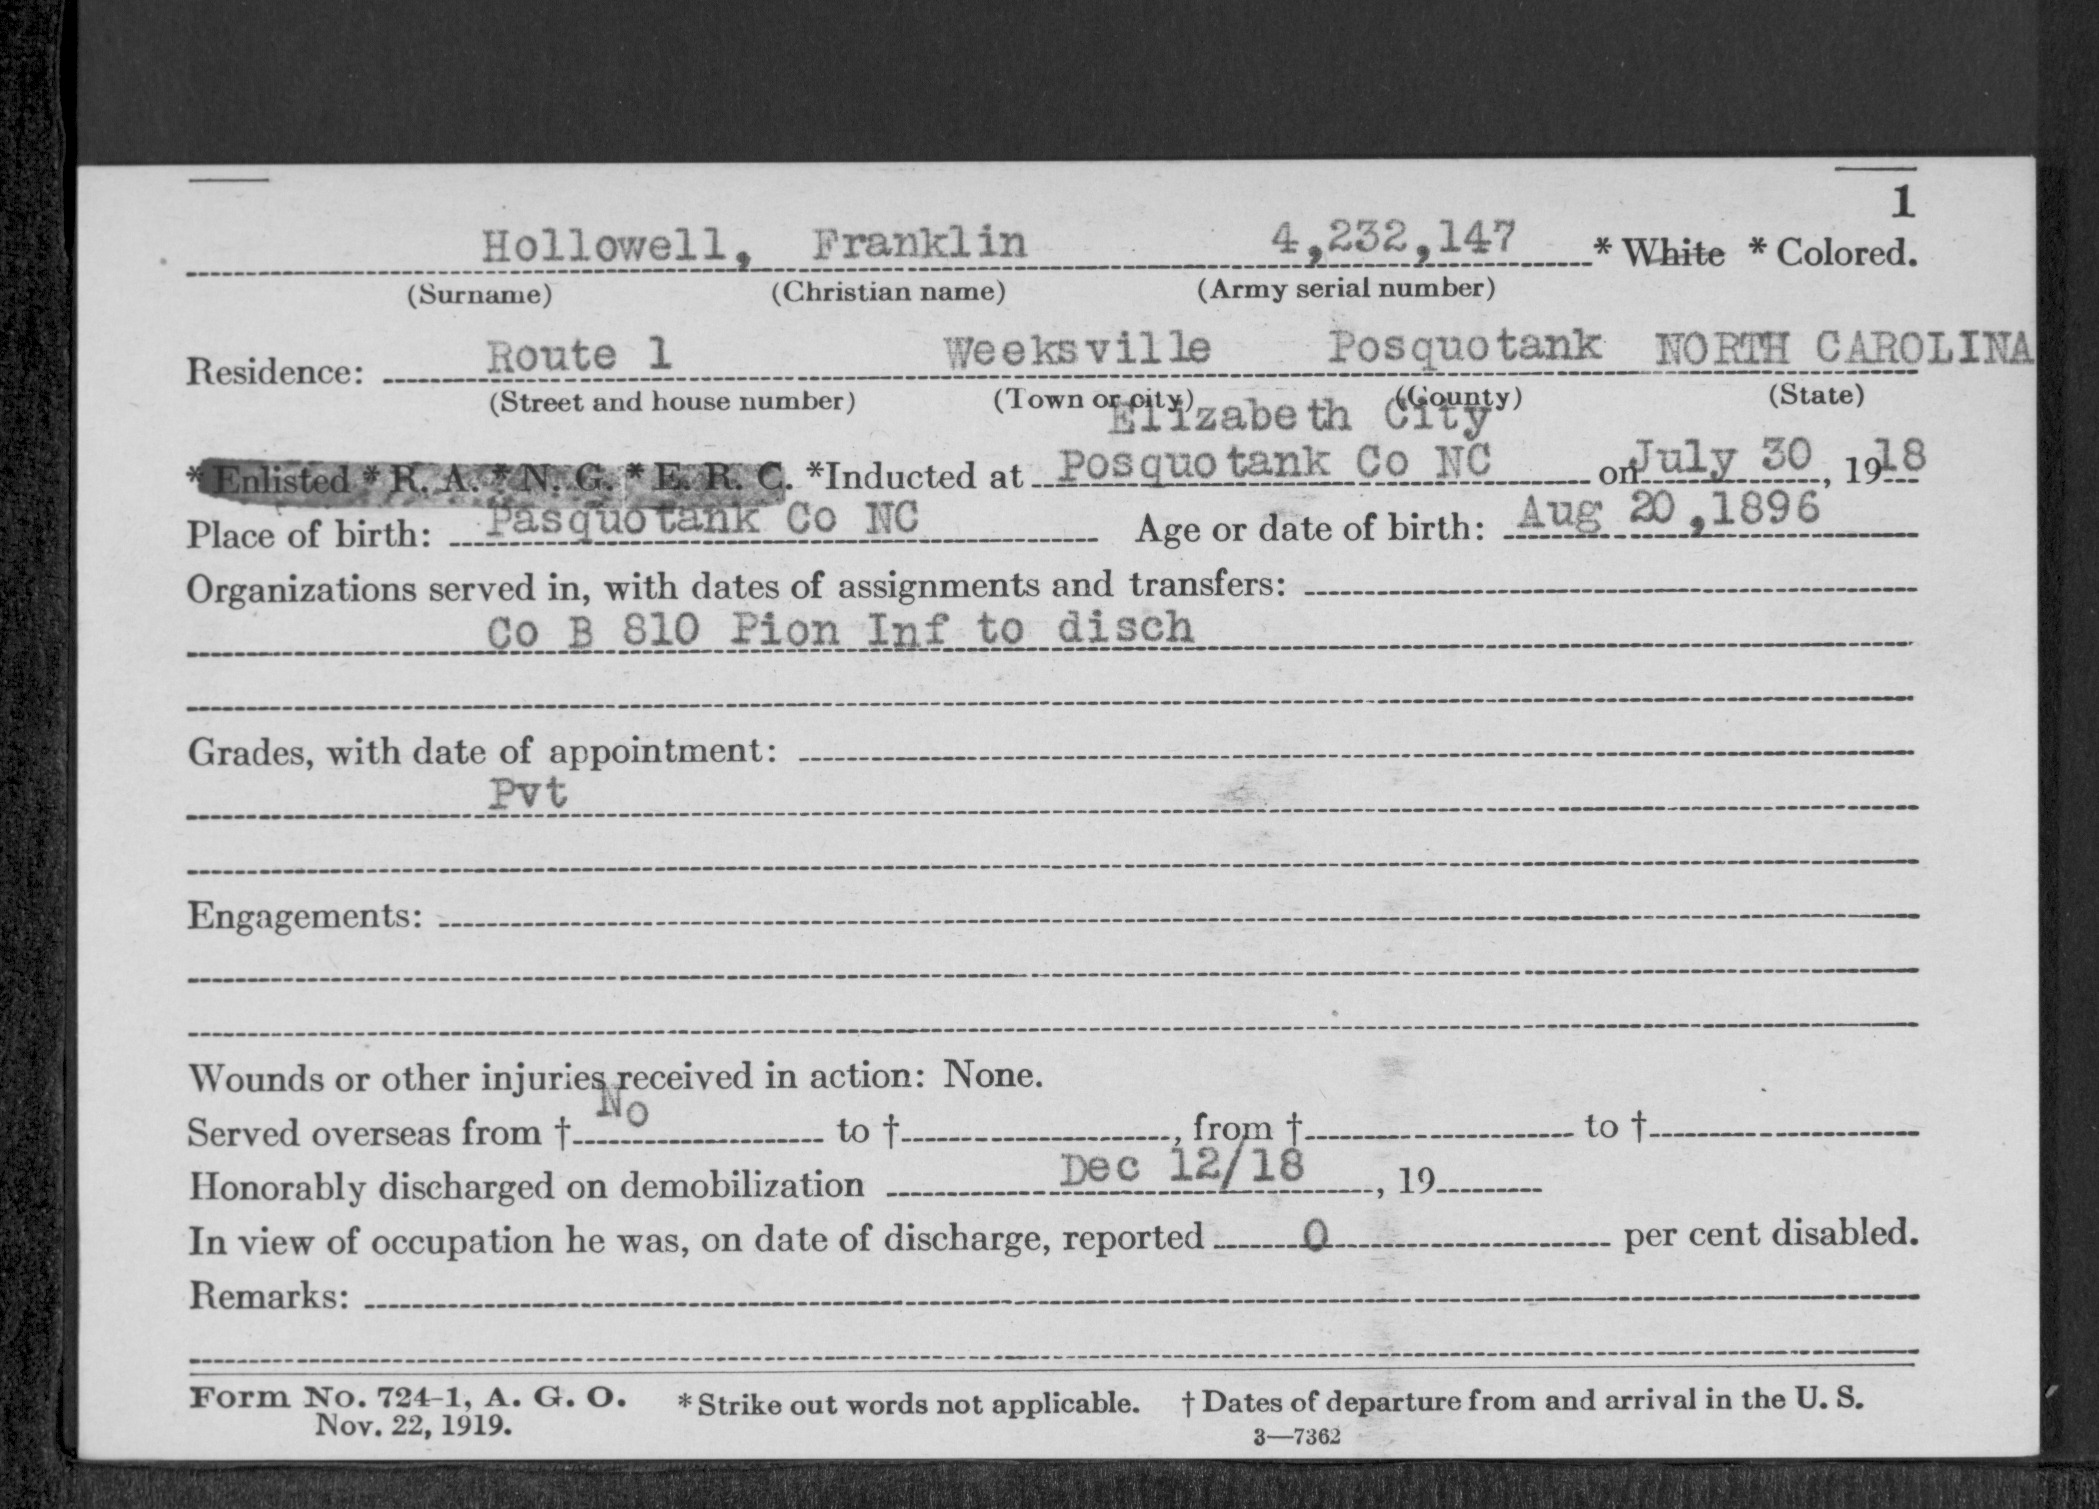 1
Hollowell, Franklin 4,232,147 * White * Colored.
(Surname) (Christian name) (Army serial number)
Residence: Route 1 Weeksville Posquotank NORTH CAROLINA
(Street and house number) (Town or city) (County) (State)
Elizabeth City
* Enlisted * R. A. * N. G. * E. R. C. *Inducted at Posquotank Co NC on July 30, 1918
Place of birth: Pasquotank Co NC Age or date of birth: Aug 20,1896
Organizations served in, with dates of assignments and transfers:
Co B 810 Pion Inf to disch
Grades, with date of appointment:
Pvt
Engagements:
Wounds or other injuries received in action: None.
Served overseas from † No to †, from † to †
Honorably discharged on demobilization Dec 12/18, 19
In view of occupation he was, on date of discharge, reported 0 per cent disabled.
Remarks:
Form No. 724-1, A. G. O. * Strike out words not applicable. † Dates of departure from and arrival in the U. S.
Nov. 22, 1919. 3—7362